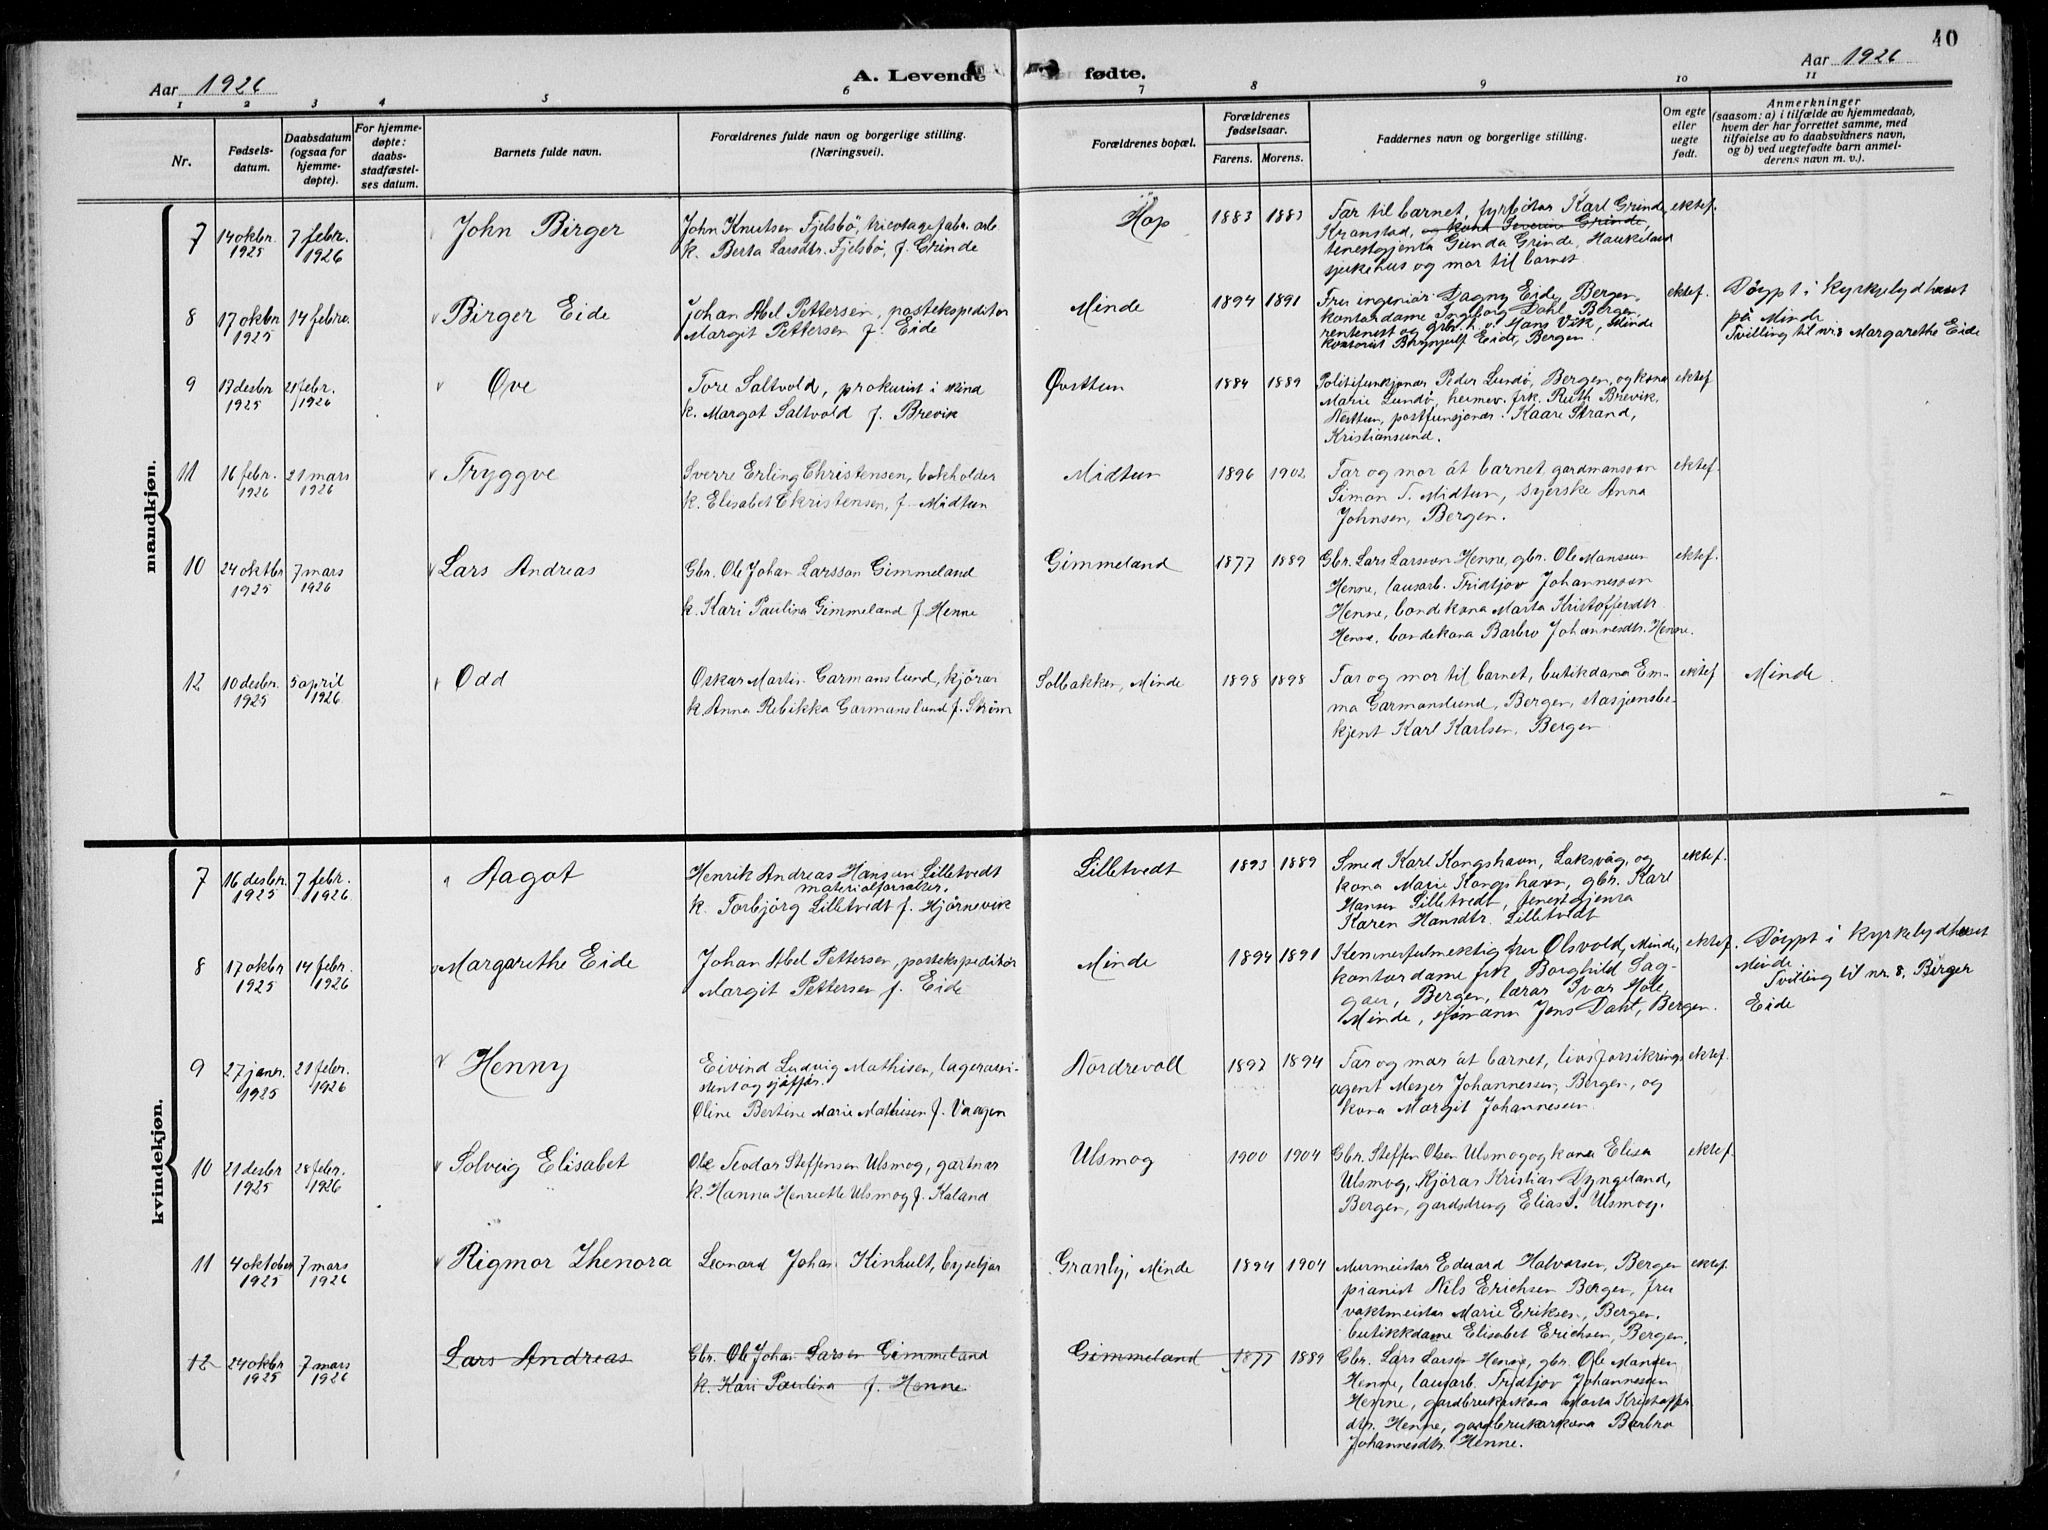 40
Aar 1926
A. Levende fødte.
Aar 1926
1 2 3 4 5 6 7 8 9 10 11
Nr.
Fødsels-
datum.
Daabsdatum
(ogsaa for
hjemme-
døpte).
For hjemme-
døpte:
daabs-
stadfæstel-
ses datum.
Barnets fulde navn.
Forældrenes fulde navn og borgerlige stilling.
(Næringsvei).
Forældrenes bopæl.
Forældrenes
fødselsaar.
Farens. Morens.
Faddernes navn og borgerlige stilling.
Om egte
eller
uegte
født.
Anmerkninger
(saasom: a) i tilfælde av hjemmedaab,
hvem der har forrettet samme, med
tilføielse av to daabsvidners navn,
og b) ved uegtefødte barn anmel-
derens navn m. v.).
mandkjøn.
7
14 okbr.
1925
7 febr.
1926
John Birger
John Knutsen Fjelsbö, tricotagefabr. arb.
k. Berta Larsdtr. Fjelsbö, f. Grinde
Hop
1883 1883
Far til barnet, fyrbötar Karl Grinde,
Kranstad, og kona Severine Grinde,
tenestgjenta Gunda Grinde, Haukeland
sjukehus og mor til barnet.
ektef.
8
17 okbr
1925
14 febr.
Birger Eide
Johan Abel Pettersen, postekspeditör
Margit Pettersen f. Eide
Minde
1894 1891
Fru ingeniör Dagny Eide, Bergen,
kontordame Ingeborg Dahl, Bergen,
rentenist og gbr. h. v. Hans Vik, Minde
kontorist Brynjulf Eide, Bergen.
ektef.
Döypt i kyrkjelydhuset
på Minde
Tvilling til nr. 8 Margarethe Eide
9
13 desbr
1925
21 febr.
1926
Ove
Tore Saltvold, prokurist i skind
k. Margot Saltvold f. Brevik
Øvsttun
1884 1889
Politifunksjonær Peder Lundö, Bergen, og kona
Marie Lundö, heimev. frk. Ruth Brevik,
Nesttun, postfunsjonær Kaare Strand,
Kristiansund.
ektef
11
16 febr.
1926
21 mars
1926
Tryggve
Sverre Erling Christensen, bokholder
k. Elisabet Christensen, f. Midtun
Midtun
1896 1902
Far og mor åt barnet, gardmannsson
Simon T. Midtun, syerske Anna
Johnsen, Bergen.
ektef.
10
24 oktbr
1925
7 mars
1926
Lars Andreas
Gbr. Ole Johan Larsson Gimmeland
k. Kari Paulina Gimmeland f. Henne
Gimmeland
1877 1889
Gbr. Lars Larsson Henne, gbr. Ole Monsson
Henne, lausarb. Fridtjov Johannesson
Henne, bondekona Marta Kristoffersdtr
Henne, bondekona Barbro Johannesdtr. Henne.
ektef.
12
10 desbr.
1925
5 april
1926
Odd
Oskar Martin Garmanslund, kjörar
k. Anna Rebikka Garmanslund f. Strøm
Solbakken, Minde
1898 1898
Far og mor til barnet, butikdama Em-
ma Garmanslund, Bergen, stasjonsbe-
kjent Karl Karlsen, Bergen
ektef
Minde.
kvindekjøn.
7
16 desbr.
1925
7 febr.
1926
Aagot
Henrik Andreas Hansen Lilletvedt
materialforvalter.
k. Torbjörg Lilletvedt f. Hjörnevik
Lilletvedt
1893 1889
Smed Karl Kongshavn, Laksvåg, og
kona Marie Kongshavn, gbr. Karl
Hansen Lilletvedt, tenestgjenta
Karen Hansdtr. Lilletvedt
ektef.
8
17 okbr
1925
14 febr.
1926
Margarethe Eide
Johan Abel Pettersen, postekspeditör
Margit Pettersen f. Eide
Minde
1894 1891
Kemnerfulmektig fru Olsvold, Minde,
kontordame frk. Borghild
Bergen, lærar Ivar
Minde, sjömann Jens Dahl, Bergen.
ektef.
Döypt i kyrkjelydhuset
Minde
Tvilling til nr. 8, Birger
Eide
9
27 janr.
1925
21 febr.
1926
Henny
Eivind Ludvig Mathisen, lagerassi-
stent og sjåfför.
Oline Bertine Marie Mathisen f. Vaagen
Nordrevoll
1897 1894
Far og mor åt barnet, livsforsikrings
agent Johannessen, Bergen, og
kona Margit Johannesen
ektef.
10
21 desbr
1925
28 febr.
1926
Solveig Elisabet
Ole Teodor Steffensen Ulsmog, gartnar
k. Hanna Henriette Ulsmog f. Kaland
Ulsmog
1900 1904
Gbr. Steffen Olsen Ulsmog og kona Elisa
Ulsmog, Kjörar Kristian Dyngeland,
Bergen, gardsdreng Elias S. Ulsmog.
ektef.
11
4 oktober
1925
7 mars
1926
Rigmor Thenora
Leonard Johan Kinhult, byseljar
Granly, Minde
1894 1904
Murmeistar Edvard Halvorsen, Bergen
pianist Nils Erichsen Bergen, fru
vaktmeistar Marie Eriksen, Bergen.
butikkdame Elisabet Erichsen, Bergen.
ektef.
12
24 okbr
1925
7 mars
1926
Lars Andreas
Gbr. Ole Johan Larsen Gimmeland
k. Kari Paulina f. Henne
Gimmeland
1877 1889
Gbr. Lars Larsen Henne, gbr. Ole Mansen
Henne, lausarb. Fridtjov Johannessen
Henne, gardbrukarkona Marta Kristoffer
dtr. Henne, gardbrukarkona Barbro
Johannesdtr. Henne.